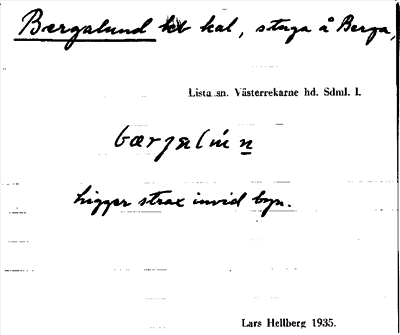 Bergalund kal, stuga å Berga,
Lista sn. Västerrekarne hd. Sdml. l.
bærgalun
ligger strax invid byn.
Lars Hellberg 1935.